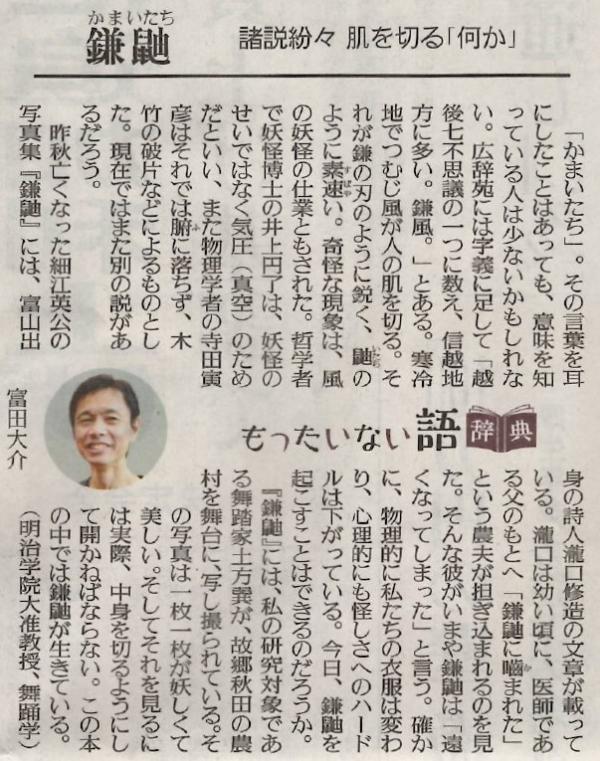 かまいたち
鎌鼬
諸説紛々 肌を切る「何か」
「かまいたち」。その言葉を耳
にしたことはあっても、意味を知
っている人は少ないかもしれな
い。広辞苑には字義に足して「越
後七不思議の一つに数え、信越地
方に多い。鎌風。」とある。寒冷
地でつむじ風が人の肌を切る。そ
れが鎌の刃のように鋭く、鼬の
いたち
ように素速い。奇怪な現象は、風
すばや
の妖怪の仕業ともされた。哲学者
で妖怪博士の井上円了は、妖怪の
せいではなく気圧(真空)のため
だといい、また物理学者の寺田寅
彦はそれでは腑に落ちず、木
ふ
竹の破片などによるものとし
た。現在ではまた別の説があ
るだろう。
昨秋亡くなった細江英公の
写真集『鎌鼬』には、富山出
もったいない語辞典
富田大介
身の詩人瀧口修造の文章が載って
いる。瀧口は幼い頃に、医師であ
る父のもとへ「鎌鼬に嚙まれた」
か
という農夫が担ぎ込まれるのを見
た。そんな彼がいまや鎌鼬は「遠
くなってしまった」と言う。確か
に、物理的に私たちの衣服は変わ
り、心理的にも怪しさへのハード
ルは下がっている。今日、鎌鼬を
起こすことはできるのだろうか。
『鎌鼬』には、私の研究対象であ
る舞踏家土方巽が、故郷秋田の農
村を舞台に、写し撮られている。そ
の写真は一枚一枚が妖しくて
美しい。そしてそれを見るに
は実際、中身を切るようにし
て開かねばならない。この本
の中では鎌鼬が生きている。
(明治学院大准教授、舞踊学)